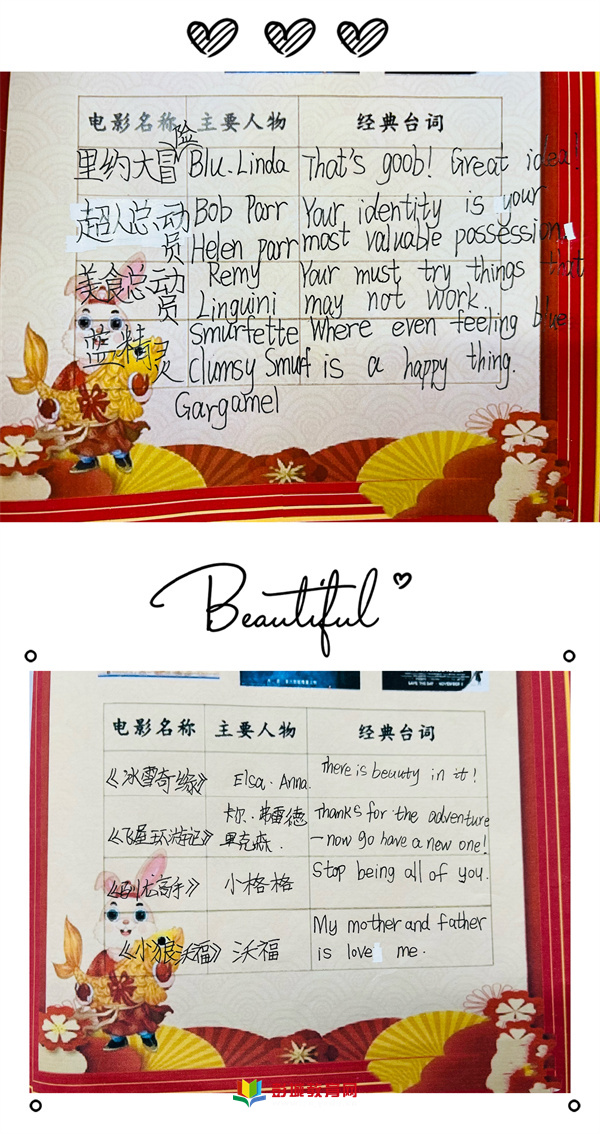 电影名称 主要人物 经典台词
里约大冒险 Blu. Linda That's goob! Great idea!
超人总动员 Bob Parr Helen parr Your identity is your most valuable possession.
美食总动员 Remy Linguini Your must try things that may not work.
蓝精灵 Smurfette Clumsy Smurf Gargamel Where even feeling blue is a happy thing.
Beautiful
SAVE THE DAY NOVEMBER
电影名称 主要人物 经典台词
《冰雪奇缘》 Elsa. Anna. There is beauty in it!
《飞屋环游记》 卡尔·弗雷德里克森. Thanks for the adventure —now go have a new one!
高手》 小格格 Stop being all of you.
《小狼沃福》 沃福 My mother and father is love me.
彭城教育网